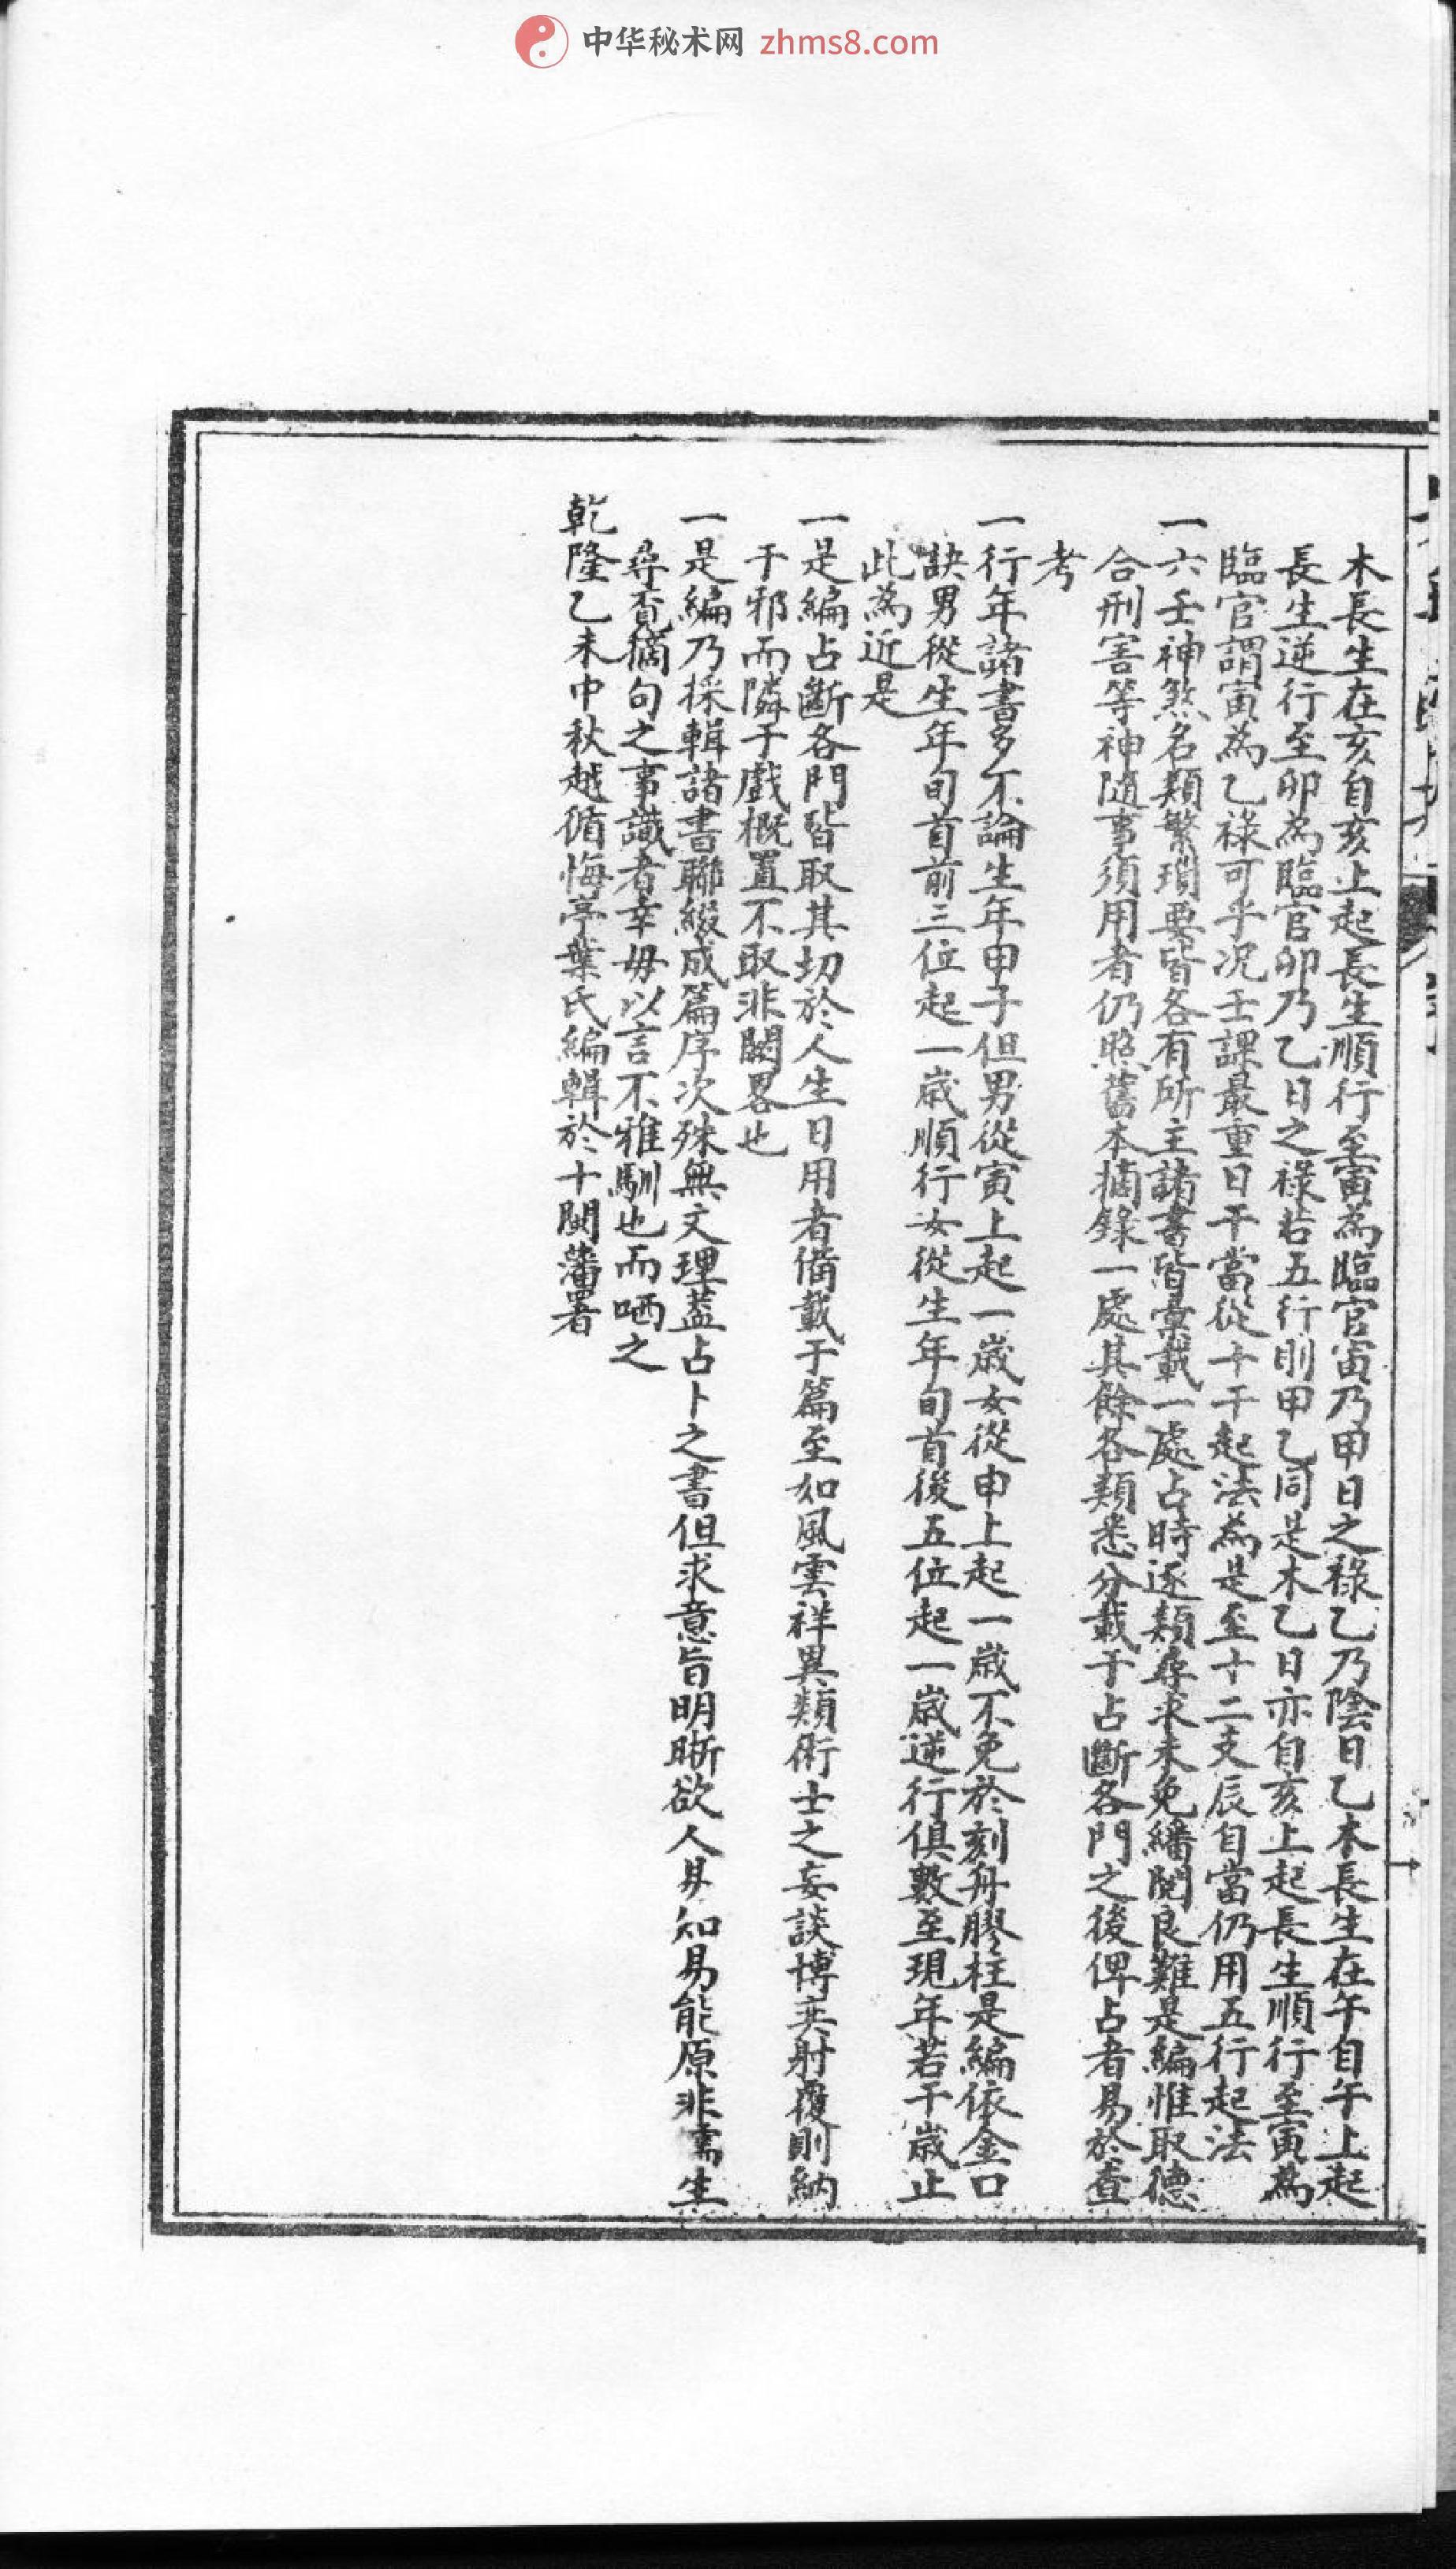 中华秘术网 zhms8.com
木長生在亥自亥上起長生順行至寅為臨官寅乃甲日之祿乙乃陰日乙木長生在午自午上起
長生逆行至卯為臨官卯乃乙日之祿若五行則甲乙同是木乙日亦自亥上起長生順行至寅為
臨官謂寅為乙祿可乎况壬課最重日干當從十干起法為是至十二支辰自當仍用五行起法
一六壬神煞名類繁瑣要皆各有所主諸書皆彙載一處占時逐類尋求未免繙閱良難是編惟取德
合刑害等神隨事須用者仍照舊本摘錄一處其餘各類悉分載于占斷各門之後俾占者易於查
考
一行年諸書多不論生年甲子但男從寅上起一歲女從申上起一歲不免於刻舟膠柱是編依金口
訣男從生年旬首前三位起一歲順行女從生年旬首後五位起一歲逆行俱數至現年若干歲止
此為近是
一是編占斷各門皆取其切於人生日用者備載于篇至如風雲祥異類術士之妄談博奕射覆則納
于邪而隣于戲概置不取非闕畧也
一是編乃採輯諸書聯綴成篇序次殊無文理葢占卜之書但求意旨明晰欲人易知易能原非儒生
尋章摘句之事識者幸毋以言不雅馴也而哂之
乾隆乙未中秋越循悔亭葉氏編輯於十閩藩署